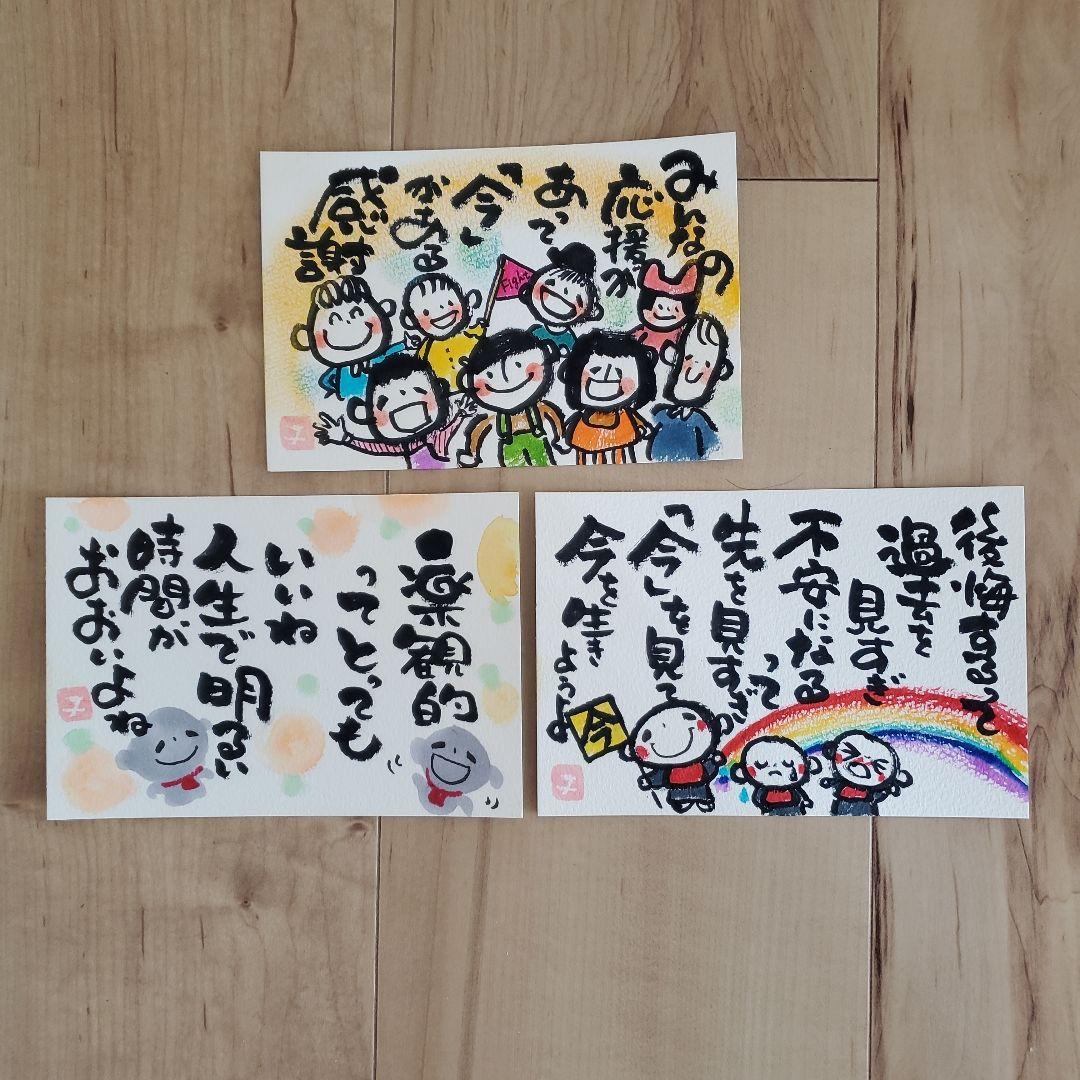 みんなの
応援が
あって
「今」
がある
感じ謝
Fight
楽観的
ってとっても
いいね
人生で明るい
時間が
おおいよね
後悔するって
過去を
見すぎ
不安になる
って
先を見すぎ
「今」を見て
今を生き
ようよ
今